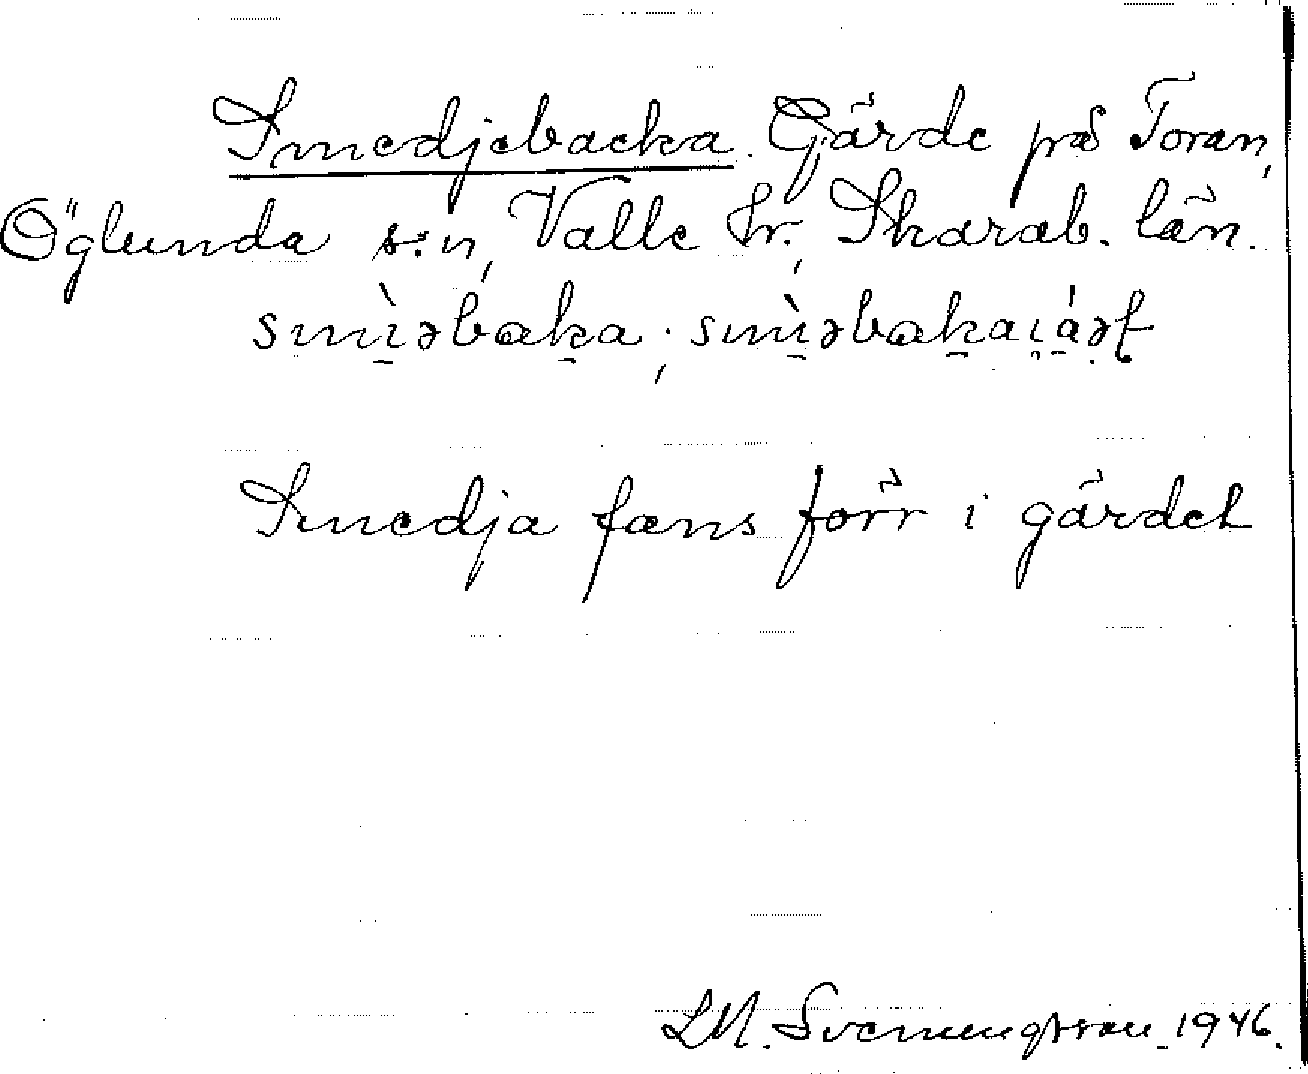 Smedjebacka. Gärde på Toran,
Öglunda s:n, Valle hr., Skarab. län.
smìəbaka; smìəbakaɪáət
Smedja fans förr i gärdet
L M. Svenungsson 1946.